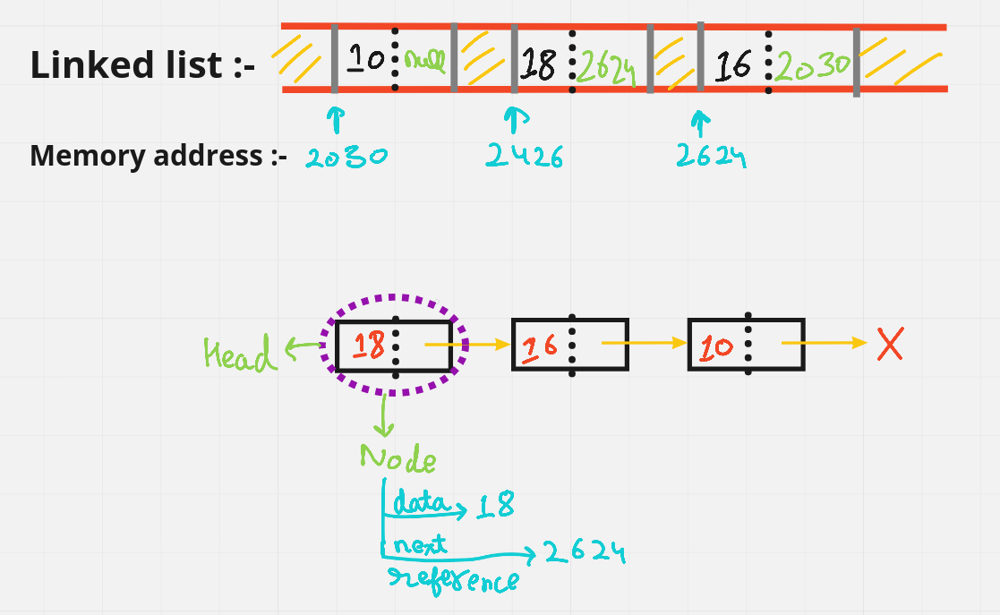 Linked list :- 10 null 18 2624 16 2030
Memory address :- 2030 2426 2624
Head 18 16 10 X
Node
data 18
next 2624
reference